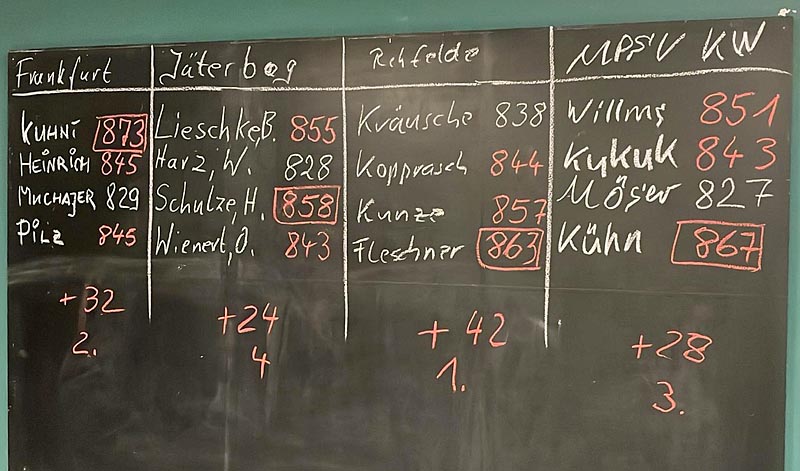 Frankfurt
KUHNT 873
HEINRICH 845
MUCHAJER 829
PILZ 845
+32
2.
Jäterbog
Lieschke,B. 855
Harz, W. 828
Schulze, H. 858
Wienert, O. 843
+24
4
Rehfelde
Kräusche 838
Kopprasch 844
Kunze 857
Fleschner 863
+ 42
1.
MPSV KW
Willms 851
Kykuk 843
Möser 827
Kühn 867
+28
3.